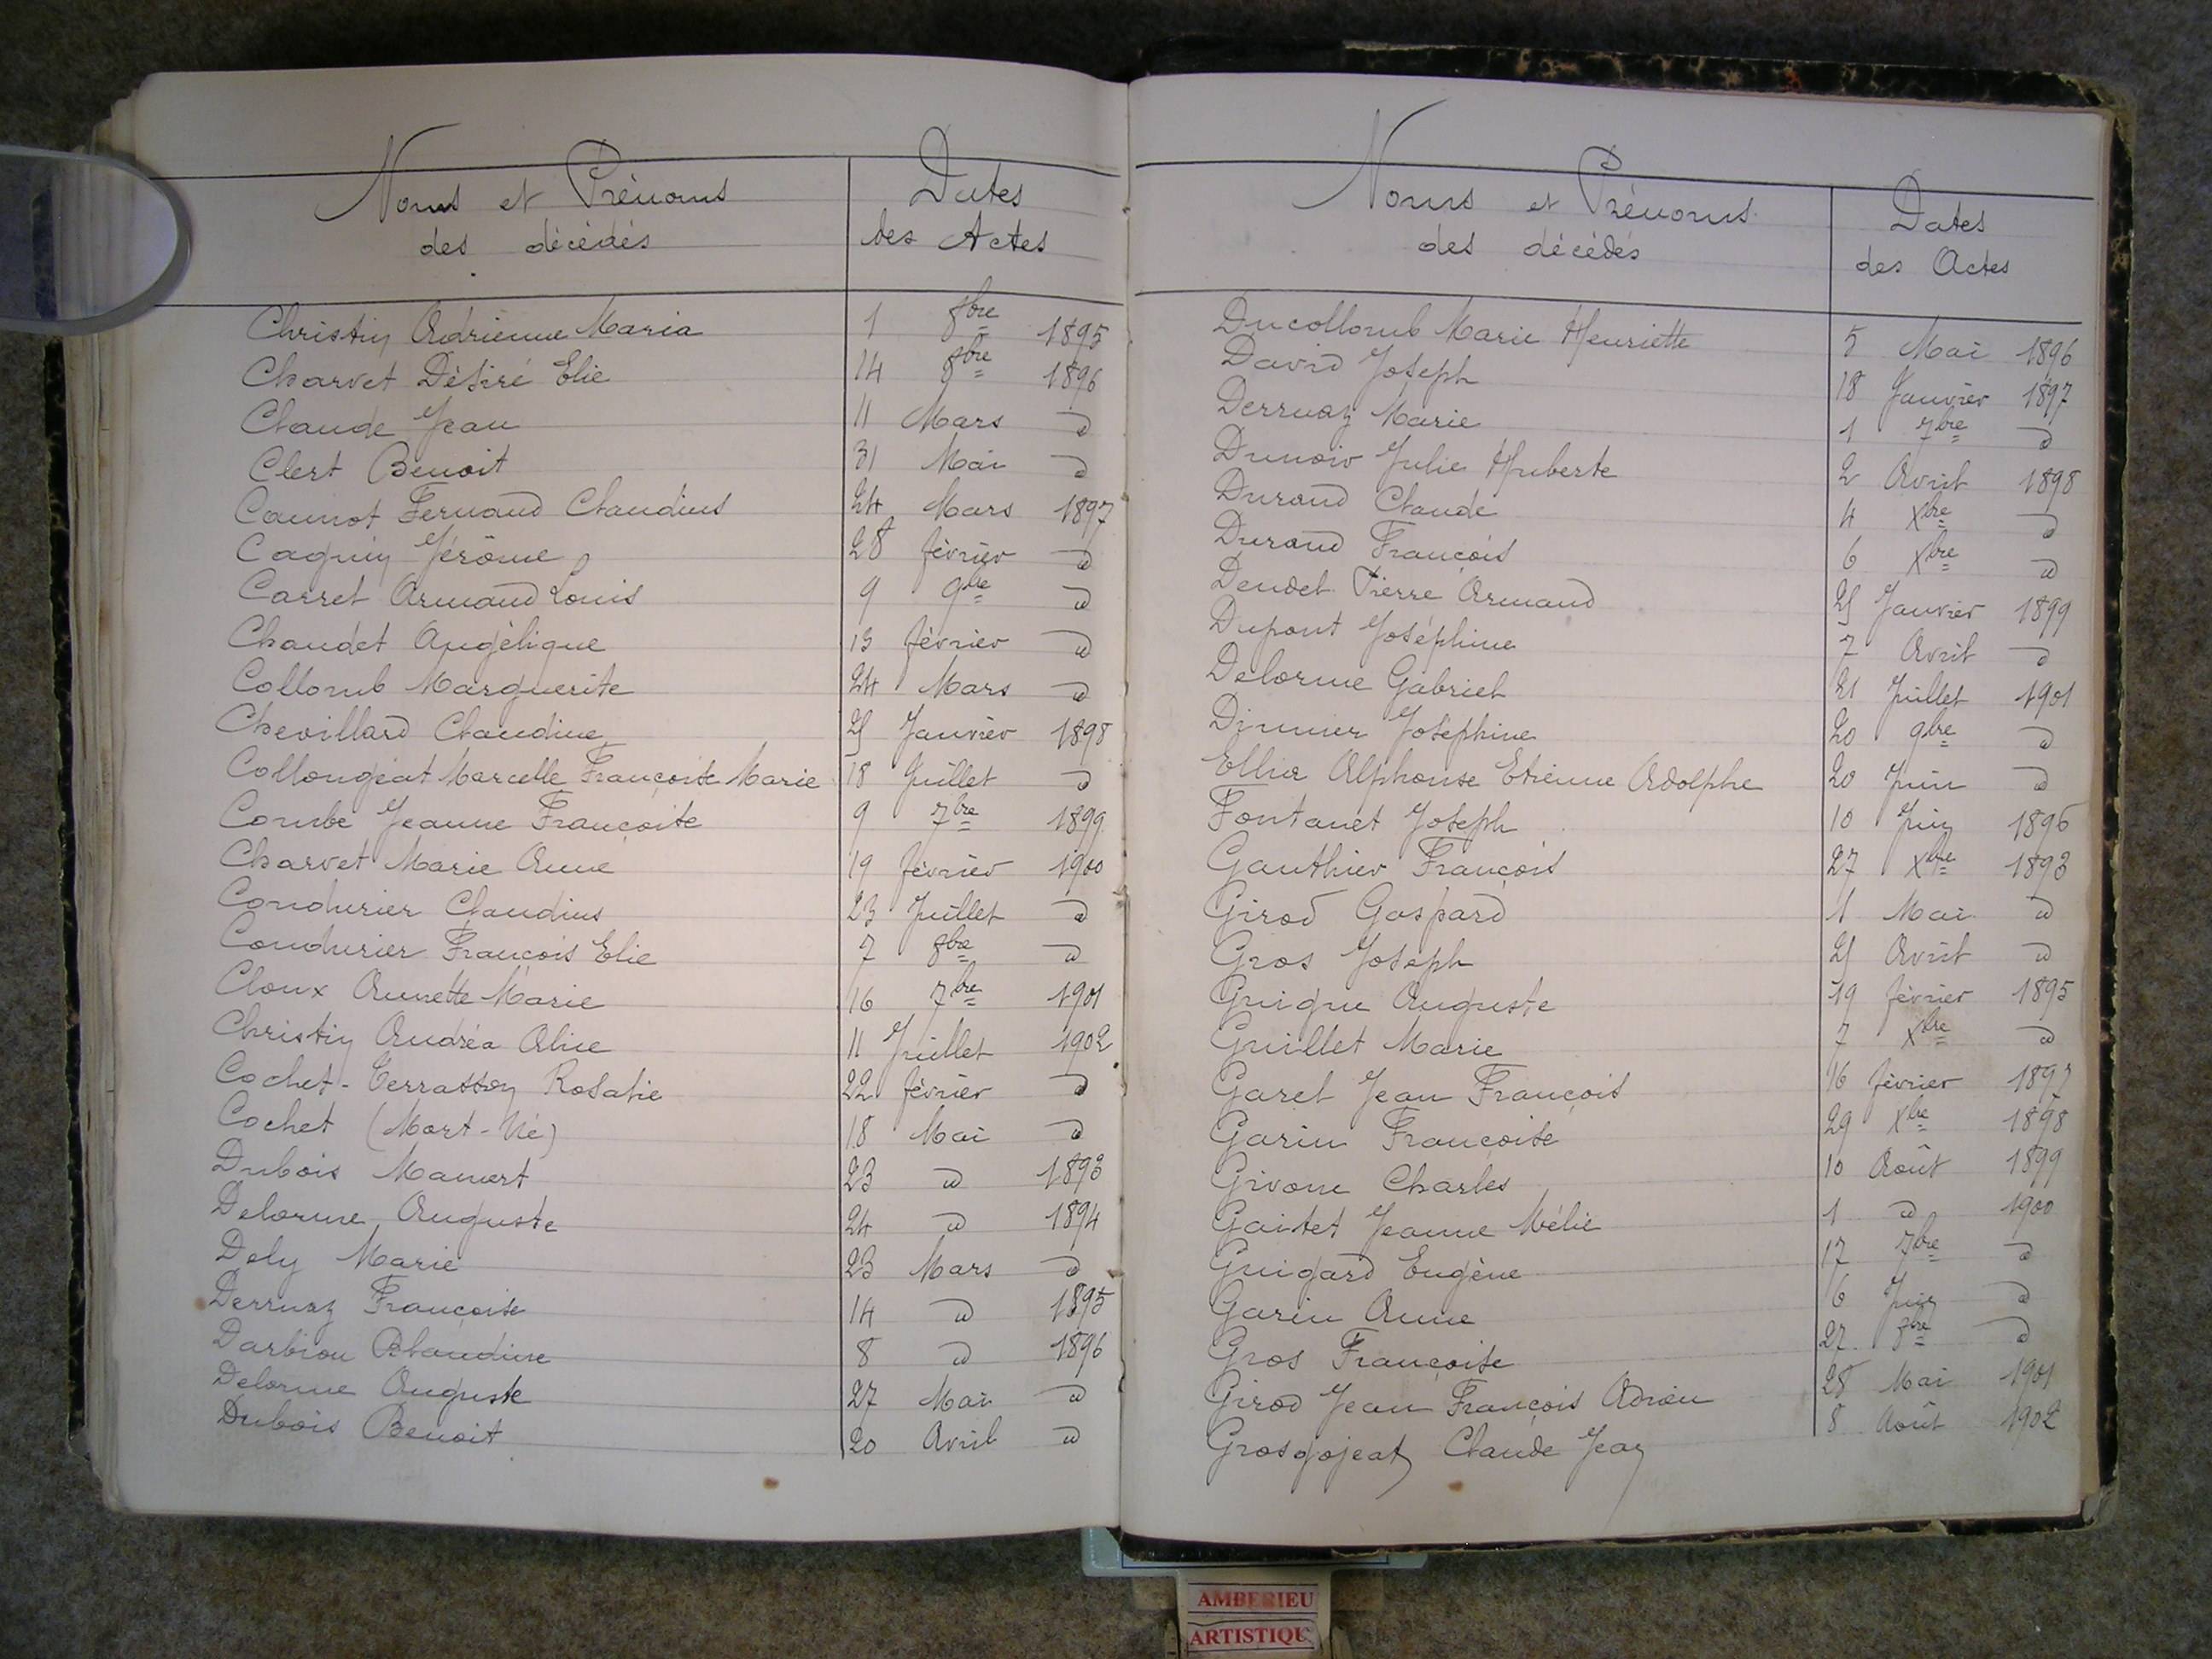 Noms et Prénoms
des décédés
Dates
des Actes
Christin Adrienne Maria 1 8bre 1895
Charvet Désiré Elie 14 8bre 1896
Claude Jean 11 Mars d
Clert Benoit 31 Mai d
Cannot Fernand Claudius 24 Mars 1897
Cagnin Jérôme 28 février d
Carret Armand Louis 9 9bre d
Chaudet Angélique 13 février d
Collomb Marguerite 24 Mars d
Chevillard Claudine 25 Janvier 1898
Collongeat Marcelle Françoise Marie 18 Juillet d
Combe Jeanne Françoise 9 7bre 1899
Charvet Marie Anne 19 février 1900
Condurier Claudius 23 Juillet d
Condurier François Elie 7 8bre d
Cloux Annette Marie 16 7bre 1901
Christin Andréa Alice 11 Juillet 1902
Cochet-Terrasson Rosalie 22 février d
Cochet (Mort-Né) 18 Mai d
Dubois Mamert 23 d 1893
Delorme Auguste 24 d 1894
Dely Marie 23 Mars d
Derruaz Françoise 14 d 1895
Darbion Claudine 8 d 1896
Delorme Auguste 27 Mai d
Dubois Benoit 20 Avril d
Noms et Prénoms
des décédés
Dates
des Actes
Ducollomb Marie Henriette 5 Mai 1896
David Joseph 18 Janvier 1897
Derruaz Marie 1 7bre d
Dunoir Julie Huberte 2 Avril 1898
Durand Claude 4 Xbre d
Durand François 6 Xbre d
Dendel Pierre Armand 25 Janvier 1899
Dupont Joséphine 7 Avril d
Delorme Gabriel 21 Juillet 1901
Dimier Joséphine 20 9bre d
Ellia Alphonse Etienne Adolphe 20 Juin d
Fontanet Joseph 10 Juin 1896
Gauthier François 27 Xbre 1893
Girod Gaspard 1 Mai d
Gros Joseph 25 Avril d
Guigue Auguste 19 février 1895
Guillet Marie 7 Xbre d
Garel Jean François 16 février 1897
Garin Françoise 29 Xbre 1898
Givone Charles 10 Août 1899
Gaitet Jeanne Mélie 1 d 1900
Guigard Eugène 17 7bre d
Garin Anne 6 Juin d
Gros Françoise 27 8bre d
Girod Jean François Adrien 28 Mai 1901
Grosgojeat Claude Jean 8 Août 1902
AMBERIEU
ARTISTIQU